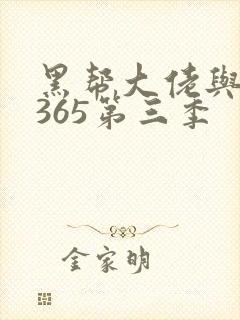 黑帮大佬與
365第三季
金家明